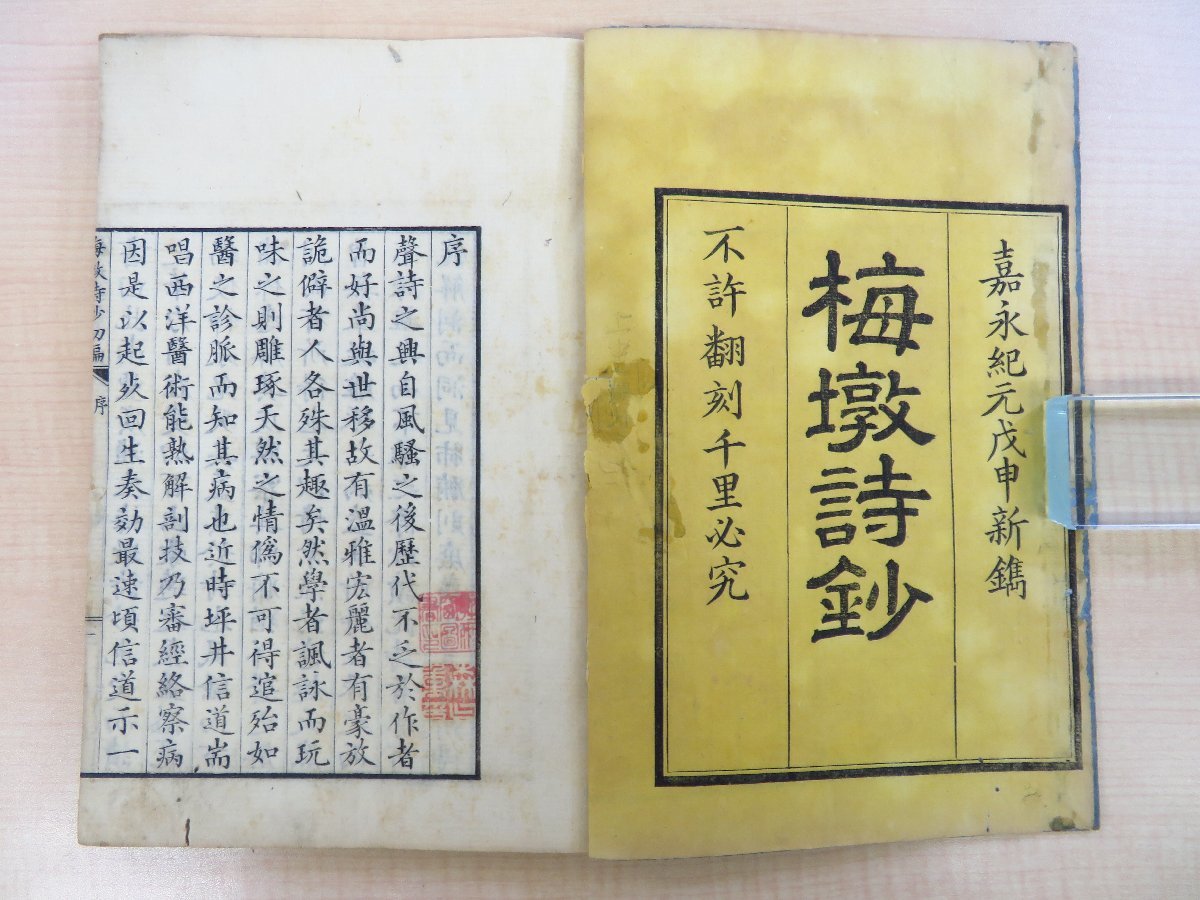 嘉永紀元戊申新鐫
梅墩詩鈔
不許翻刻千里必究
序
聲詩之興自風騷之後歷代不乏於作者
而好尚與世移故有溫雅宏麗者有豪放
詭僻者人各殊其趣矣然學者諷詠而玩
味之則雕琢天然之情僞不可得逭殆如
醫之診脈而知其病也近時坪井信道耑
唱西洋醫術能熟解剖技乃審經絡察病
因是以起死回生奏効最速頃信道示一
梅墩詩鈔初編
序